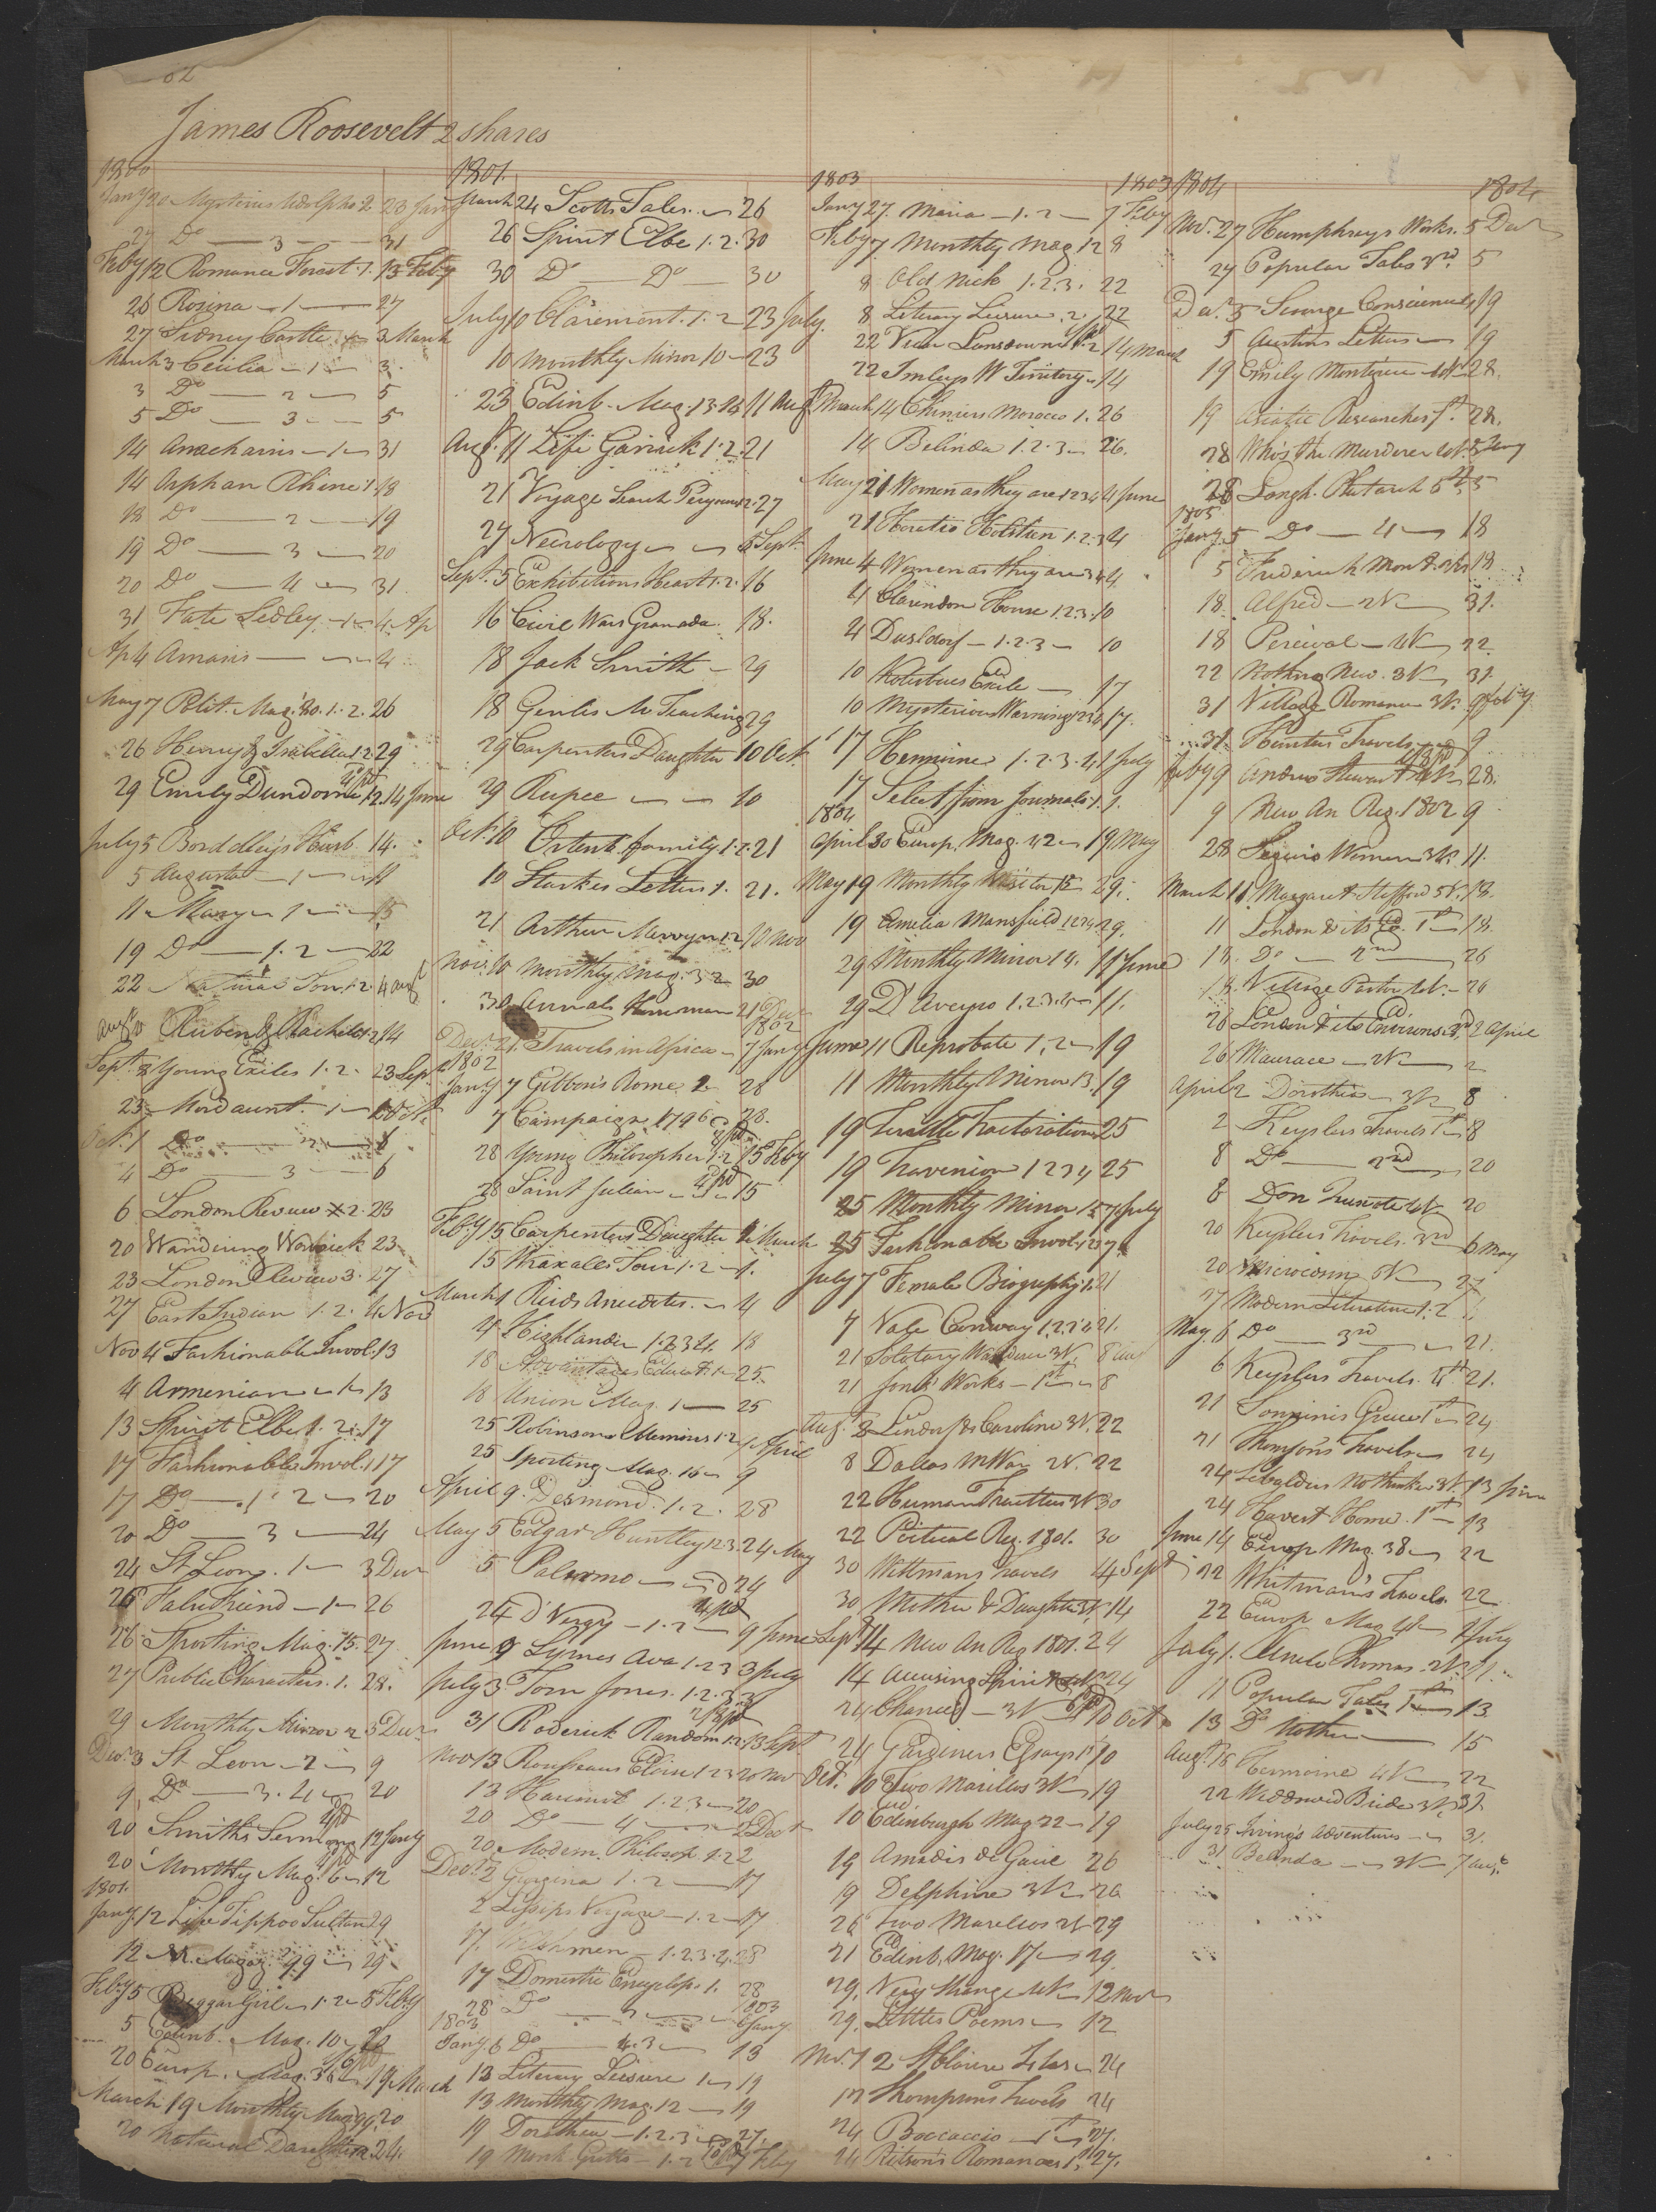 62
James Roosevelt 2 shares
1800
Jany 20 Mysteries Udolpho 2 23 Jany
27 Do 3 31
Feby 12 Romance Forest 1. 13 Feby
26 Rosina 1 27
27 Sidney Castle 3 March
March 3 Cecilia 1 3.
3 Do 2 5
5 Do 3 5
14 Anacharsis 1 31
14 Orphan Rhine 1. 18
18 Do 2 19
19 Do 3 20
20 Do 4 31
31 Fate Sedley 1 4 Ap
Ap 4 Amasis 4
May 7 Polit. Mag: 80. 1. 2. 26
26 Henry & Isabella 1. 2 29
29 Emily Dundorne 1. 2. 14 June
July 5 Bordelly's Husb 14.
5 Augusta 1 11
11 Mary 1 15
19 Do 1. 2 22
22 Natural Son 1. 2. 4 Augt
Aug Ruben & Rachel 1. 2 14
Sept. 8 Young Exiles 1. 2. 23 Sept
23 Mordaunt. 1 1 Oct
Oct. 1 Do 2
4 Do 3 6
6 London Review 2. 23
20 Wandering Warwick 23
23 London Review 3. 27
27 East Indian 1. 2. 4 Nov
Nov 4 Fashionable Invol. 13
4 Armenian 1 13
13 Spirit Elbe 1. 2. 17
17 Fashionable Invol. 1 17
17 Do 1. 2 20
20 Do 3 24
24 St Leon. 1 3 Decr
26 False Friend 1 26
26 Sporting Mag. 15. 27
27 Public Characters. 1. 28.
29 Monthly Mirror 2 3 Decr
Decr 3 St Leon 2 9
9 Do 3. 4 20
20 Smiths Sermons 12 Jany
20 Monthly Mag. 6 12
1801.
Jany 12 Life Tippoo Sultan 29
12 N. Magaz. 99 29
Feby 5 Beggar Girl 1. 2 5 Feby
5 Edinb. Mag. 10 20
20 Europ. Mag. 36 19 March
March 19 Monthly Mag 99. 20
20 Natural Daughter 24.
1801.
March 24 Scotts Tales. 26
26 Spirit Elbe 1. 2. 30
30 Do Do 30
July 10 Claremont. 1. 2 23 July.
10 Monthly Mirror 10 23
23 Edinb. Mag. 13. 14 11 Augt
Augt. 11 Life Garrick 1. 2. 21
21 Voyage Search Perouse 1. 2. 27
27 Necrology 5 Sept.
Sept. 5 Exhibitions Heart 1. 2. 16
16 Civil Wars Granada. 18.
18 Jack Smith 29
18 Genlis M. Teaching 29
29 Carpenters Daughter 10 Oct.
29 Rupee 10
Oct. 10 Ortenb. family 1. 2. 21
10 Starkes Letters 1. 21.
21 Arthur Mervyn 1. 2 10 Nov
Nov. 10 Monthly Mag. 3 2 30
30 Annals 21 Decr
1802
Decr 21 Travels in Africa 7 Jany
1802
Jany 7 Gibbon's Rome 2. 28
7 Campaign 1796 28.
28 Young Philosopher 1. 2 15 Feby
28 Saint Julian 15
Feby 15 Carpenters Daughter 1 March
15 Wraxalls Tour 1. 2 1.
March 1 Reids Anecdotes. 4
4 Highlander 1. 2 3 4. 18
18 Advantages Educat. 1 25.
18 Union Mag. 1 25
25 Robinsons Memoirs 1. 2 April
25 Sporting Mag. 16 9
April 9. Desmond. 1. 2. 28
May 5 Edgar Huntley 1 2 3. 24 May
5 Palermo 24
24 D'Vergy 1. 2 9 June
June 9 Lyrnes Ava 1. 2 3 3 July
July 3. Tom Jones. 1. 2. 3
31 Roderick Random 1. 2 13 Sept
Nov 13 Rousseaus Eloisa 1 2 3 20 Nov
13 Harcourt 1. 2. 3 20
20 Do 4 2 Decr
20 Modern Philosop. 1. 2 2
Decr. 2 Georgina 1. 2 17
2 Lessips Voyage 1. 2 17
17. 1. 2. 3. 4. 28
17 Domestic Encyclop. 1. 28
28 Do 1803
1803 6 Jany.
Jany. 6 Do 4. 3 13
13 Literary Leisure 1 19
13 Monthly Mag. 12 19
19 Dorothea 1. 2. 3 27.
19 Monk Griffin 1. 2 7 Feby
1803 1803
Jany 27. Maria 1. 2 7 Feby
Feby 7. Monthly Mag 12 8
8 Old Nick 1. 2. 3. 22
8 Literary Leisure. 2. 22
22 View Lansdown 1. 2 14 March
22 Imlays W Territory 14
March 14 Cheniers Morocco 1. 26
14 Belinda 1. 2. 3 26.
May 21 Women as they are 1 2 3 4 4 June
21 Horatio Holstein 1. 2. 3 4
June 4 Women as they are 3 4 4.
4 Clarendon House 1. 2. 3. 10
4 Dusldorf 1. 2. 3 10
10 Kotzebues Exile 17
10 Mysterious Warnings 1 2 3 4 17.
17 Hermione 1. 2. 3. 4. 1 July
17 Select from Journals 1. 1.
1804
April 30 Europ. Mag. 42 19 May
May 19 Monthly Visitor 12 29.
19 Amelia Mansfield 1 2 3 4. 29.
29 Monthly Mirror 14. 11 June
29 D'Aveyro 1. 2. 3. 11.
June 11 Reprobate 1. 2 19
11 Monthly Mirror 13. 19
19 Terrible Tractoration 25
19 Travenion 1 2 3 4 25
25 Monthly Mirror 15 7 July
25 Fashionable Invol. 1 2 3 7
July 7 Female Biography 1. 21
7 Vale Conway 1. 2. 3. 4 21.
21 Solotary Wanderer 3V. 8 Aug
21 Jones' Works 1st 8
Aug. 8 Lindorf & Caroline 3V. 22
8 Dallas M War 2V. 22
22 Human Frailties 3V 30
22 Political Reg. 1801. 30
30 Wittmans Travels 14 Sept
30 Mother & Daughter 3V 14
Sept 14 New An Reg 1801. 24
14 Accusing Spirit 24
24 Chances 3V 10 Oct
24 Gardiners Essays 1st 10
Oct. 10 Two Marillos 3V 19
10 Edinburgh Mag 22 19
19 Amadis de Gaul 26
19 Delphine 3V 26
26 Two Marellos 2V 29
21 Edinb. Mag. 17 29
29. Very Strange 4V 12 Nov
29. Littles Poems 12
Nov. 12 St Claire Isles 24
12 Thompsons Travels 24
24 Boccaccio 1st 27.
24 Ritson's Romances 1st 27.
1804 1804
Nov. 27 Humphreys Works. 5 Decr
27 Popular Tales 3rd. 5
Dec. 5 Scourge Conscience 19
5 Austins Letters 19
19 Emily Montague 4V 28.
19 Asiatic Researches 1st. 28.
28 Who's the Murderer 4V. 5 Jany
28 Langh. Plutarch 5th 5
1805
Jany. 5 Do 4 18
5 Frederick Mont. 18
18. Alfred 2V 31.
18 Percival 4V 22
22 Nothing New. 3V 31.
31 Village Romance 3V. 9 Feby
31. Hunters Travels 9
Feby 9 Andrew Stewart 4V 28.
9 New An Reg. 1802 9
28 Segurs Women 3V. 11.
March 11 Margaret Stafford 5V. 18.
11 London & its En. 1st 18.
18. Do 2nd 26
18. Village Pastor 4V. 26
26 London & its Environs. 3rd, 2 April
26 Maurace 2V 2
April 2 Dorothia 3V 8
2 Keyslers Travels 1st 8
8 Do 2nd 20
8 Don Quixote 4V 20
20 Keyslers Travels. 3rd 6 May
20 Microcosm 5V 27
27 Modern Literature 1. 2
May. 6 Do 3rd 21.
6 Keyslers Travels. 4th 21.
21 Sonninis Greece 1st 24
21 Thomson's Travels 24
24 Sebaldus Nothanker 3V. 13 June
24 Harvest Home. 1st 13
June 14 Europ Mag. 38 22
22 Whitman's Travels. 22
22 Europ Mag 41 1 July
July 1. Uncle Thomas. 2V. 11.
11 Popular Tales 1st 13
13 Do Nother 15
Augt. 16 Hermoine 4V 22
22 Widdowed Bride 3V. 31.
July 25 Irving's Adventures 31.
31 Belinda 3V 7 Augt.